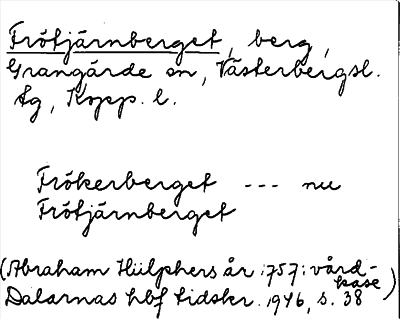 Frötjärnberget, berg,
Grangärde sn, Västerbergsl.
tg, Kopp. l.
Frökerberget --- nu
Frötjärnberget
(Abraham Hülphers år 1757: vård-
kase
Dalarnas hbf tidskr. 1946, s. 38)